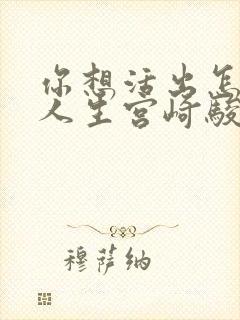 你想活出怎
人生宫崎骏
穆萨纳